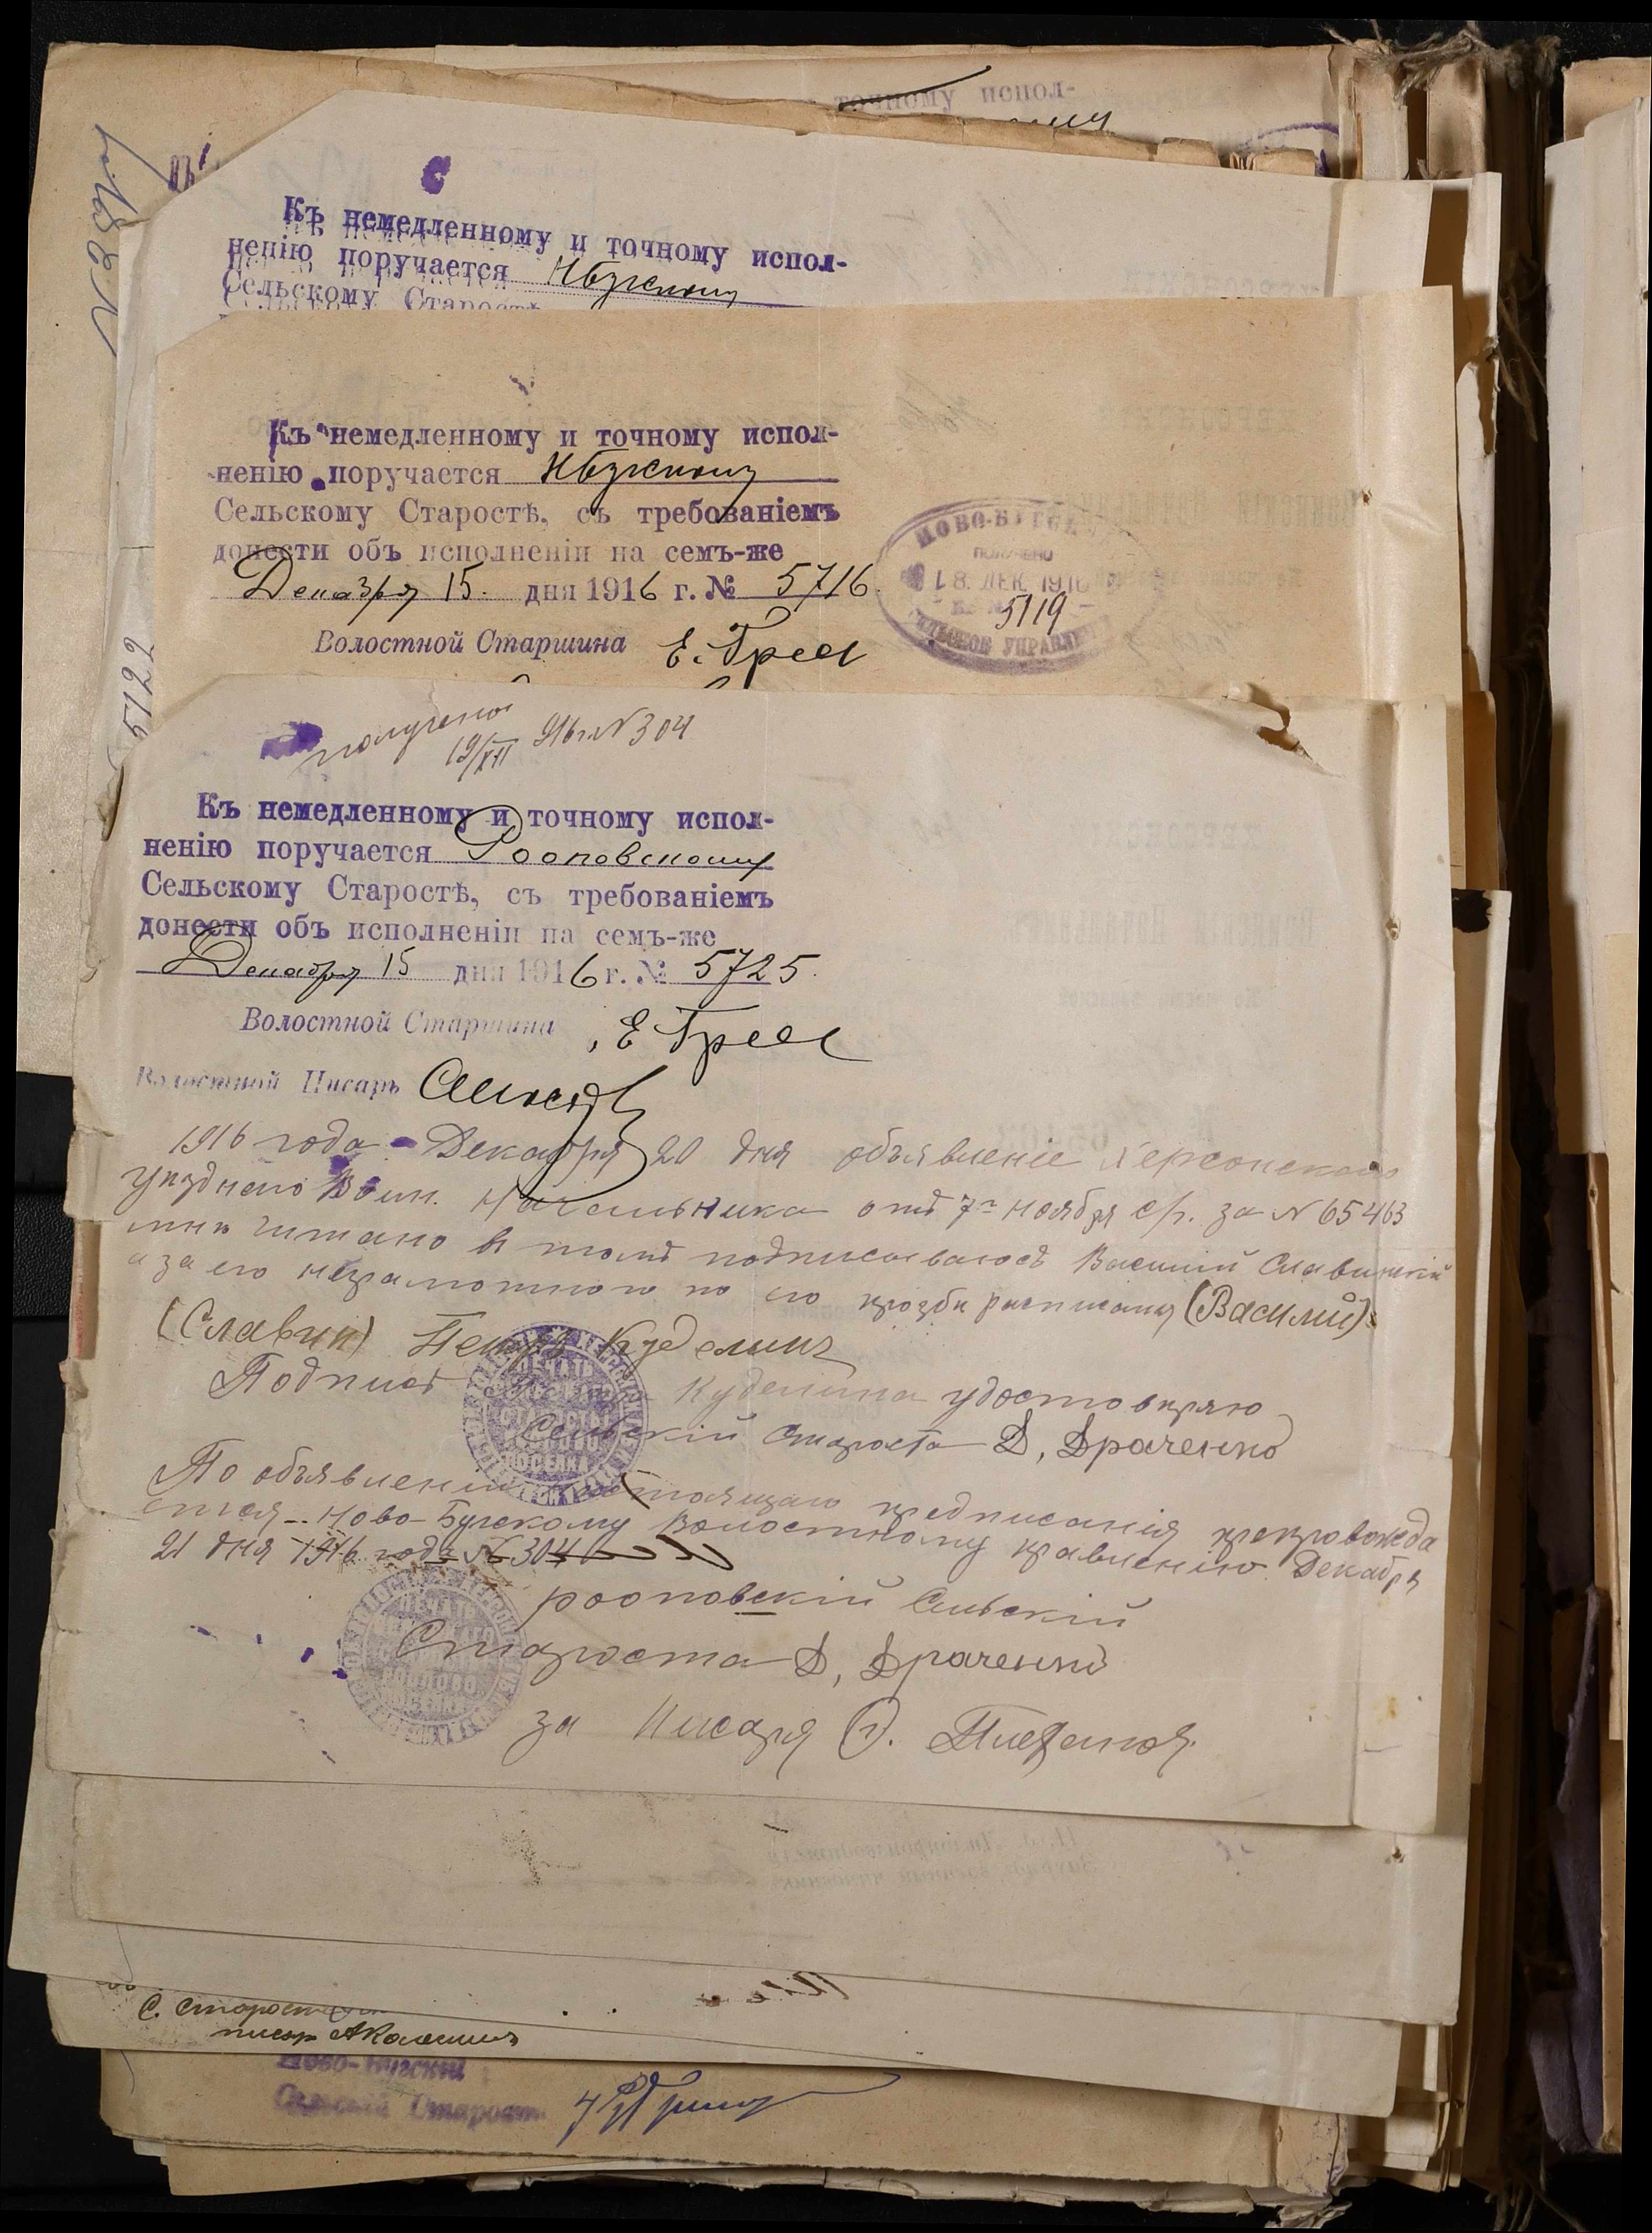 точному испол-
Къ немедленному и точному испол-
ненію поручается
Сельскому Старостѣ
Къ немедленному и точному испол-
ненію поручается
Сельскому Старостѣ, съ требованіемъ
донести объ исполненіи на семъ-же
Декабря 15. дня 1916 г. № 5716.
Волостной Старшина Е.
НОВО-БУГСК
ПОЛУЧЕНО
18. ДЕК. 1916
5119
УПРАВЛЕН
5122
получено
19/XII 916 г. N 304
Къ немедленному и точному испол-
ненію поручается Рооповскому
Сельскому Старостѣ, съ требованіемъ
донести объ исполненіи на семъ-же
Декабря 15 дня 1916 г. № 5725.
Волостной Старшина Е
Волостной Писарь
1916 года Декабря 20 дня объявленіе Херсонскаго
уѣзднаго Воин. Начальника отъ 7го ноября с/г. за N 65463
мнѣ читано въ томъ подписываюсь Василій Славинскій
а за его неграмотного по его прозбѣ росписался (Василий)
(Славин) Петръ Куделинъ
Подпись Петра Куделина удостовѣряю
Сельскій Староста Д, Драченко
По объявленіи настоящаго предписанія препровожда
ется Ново-Бугскому Волостному правленію Декабря
21 дня 1916 года № 304
рооповскій Сельскій
Староста Д, Драченко
за Писаря
С. Староста
писарь
Ново-Бугскій
Сельскій Староста